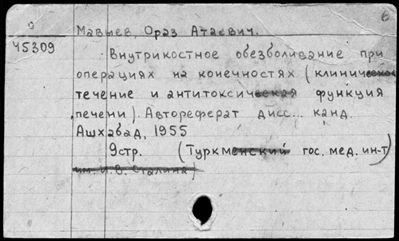 Мавыев, Ораз Атаевич.
45309
Внутрикостное обезболивание при
операциях на конечностях (клиническое
течение и антитоксическая функция
печени). Автореферат дисс... канд.
Ашхабад, 1955
9стр. (Туркменский гос. мед. ин-т
им. И.В. Сталина)